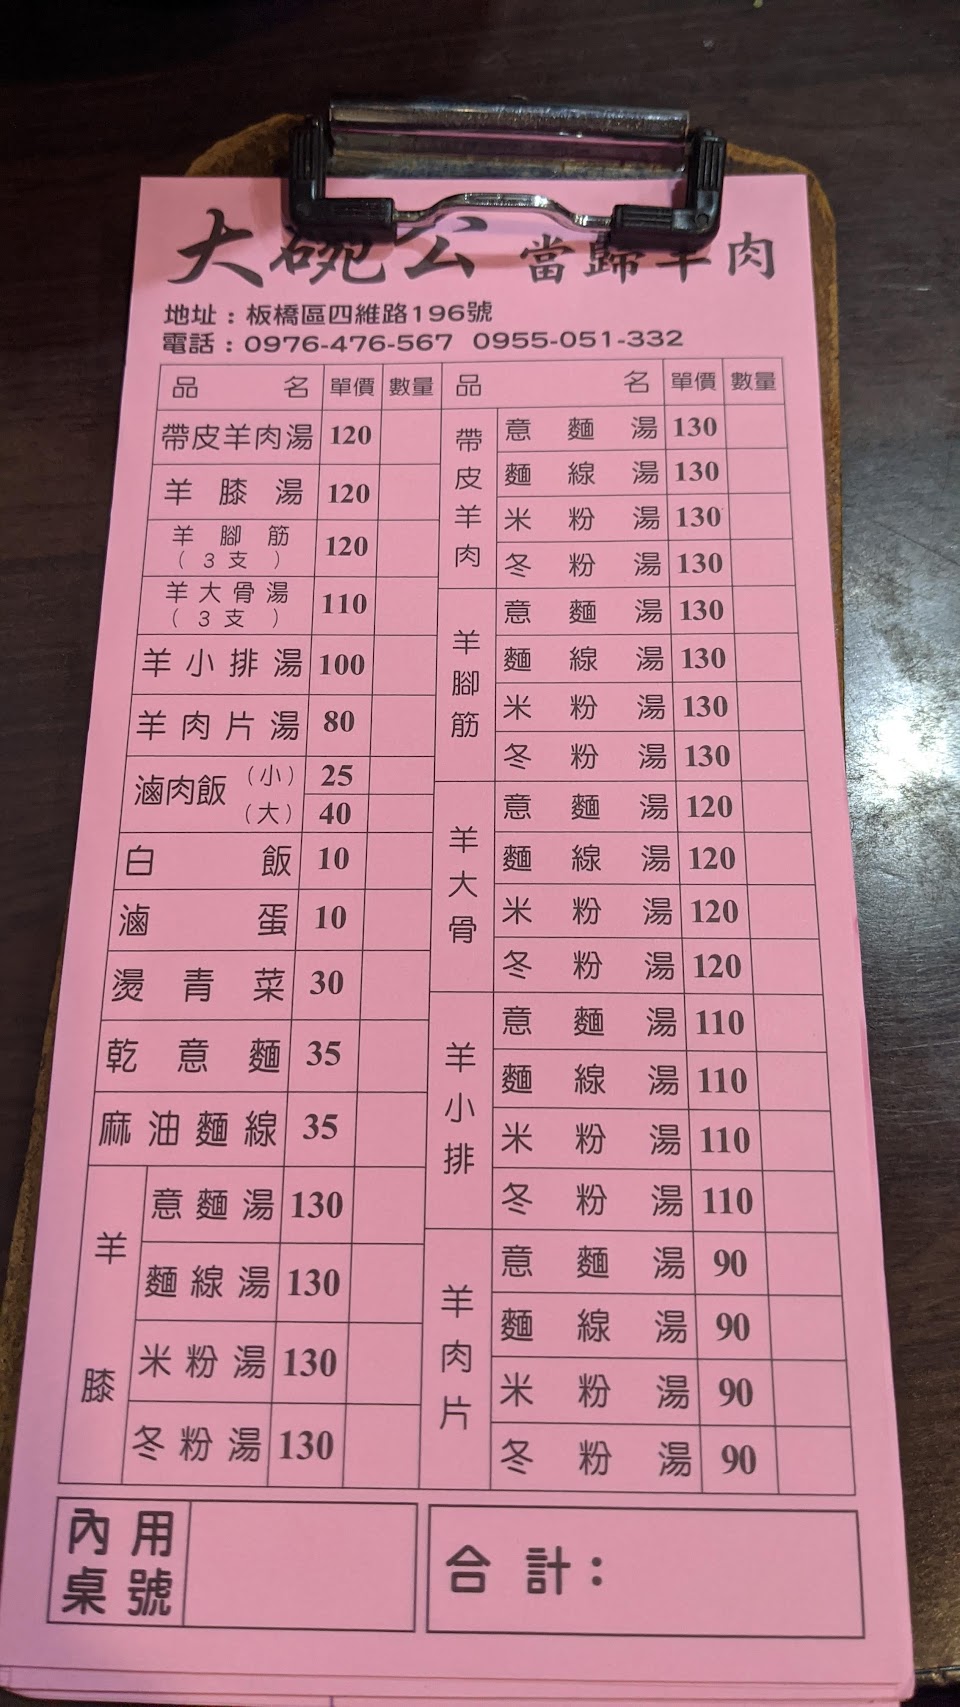 大碗公 當歸羊肉
地址：板橋區四維路196號
電話：0976-476-567 0955-051-332
品名 單價 數量
帶皮羊肉湯 120
羊膝湯 120
羊腳筋 120
（3支）
羊大骨湯 110
（3支）
羊小排湯 100
羊肉片湯 80
滷肉飯（小） 25
（大） 40
白飯 10
滷蛋 10
燙青菜 30
乾意麵 35
麻油麵線 35
羊膝
意麵湯 130
麵線湯 130
米粉湯 130
冬粉湯 130
品名 單價 數量
帶皮羊肉
意麵湯 130
麵線湯 130
米粉湯 130
冬粉湯 130
羊腳筋
意麵湯 130
麵線湯 130
米粉湯 130
冬粉湯 130
羊大骨
意麵湯 120
麵線湯 120
米粉湯 120
冬粉湯 120
羊小排
意麵湯 110
麵線湯 110
米粉湯 110
冬粉湯 110
羊肉片
意麵湯 90
麵線湯 90
米粉湯 90
冬粉湯 90
內用
桌號
合計：